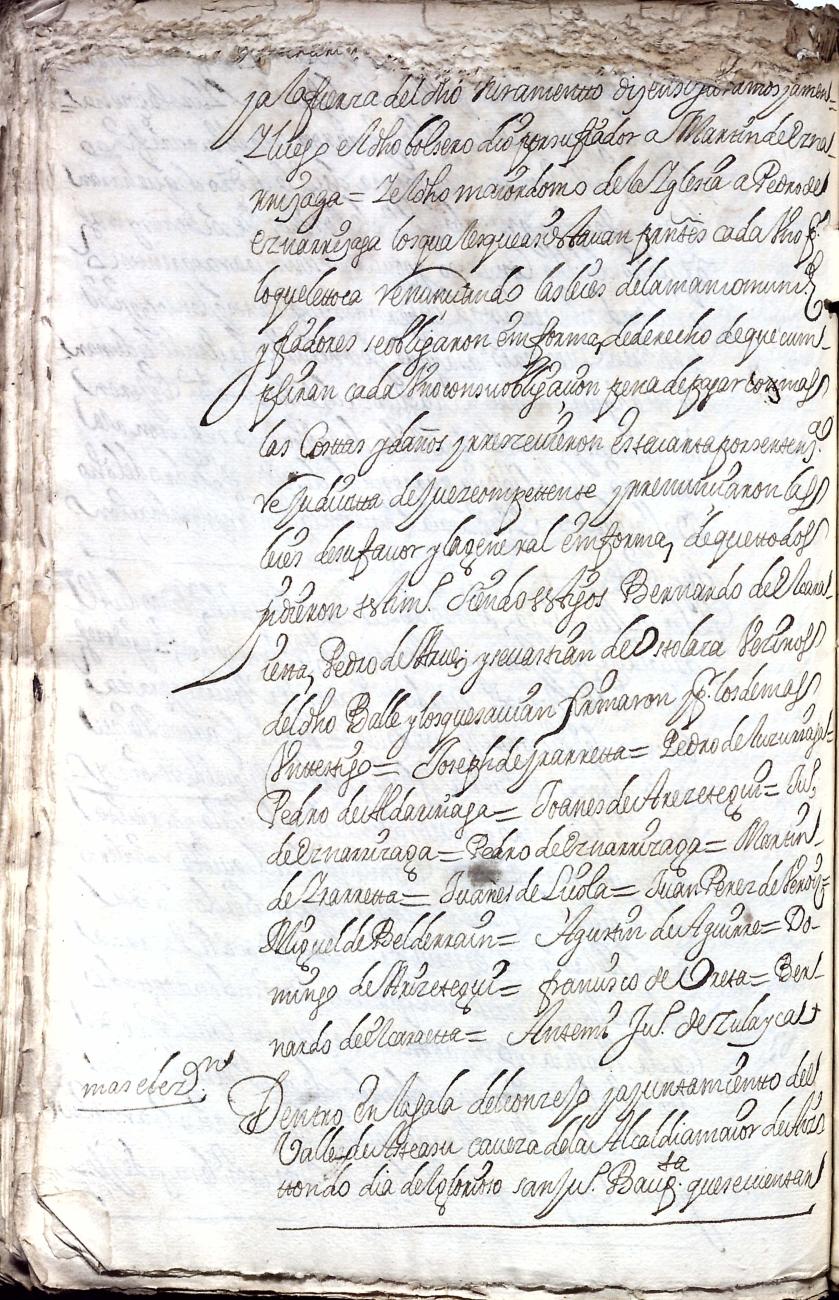 ja la fuerza del dho Juramento dijeron si Juramos jamen-
Y luego el dho bolsero dio por su fiador a Martin de Ezna
rrijaga = Y el dho maiordomo de la Yglesia a Pedro de
eznarrijaga los quales que estavan presentes cada uno p.
lo que le toca renunciando las leies de la mancomuni
y fiadores se obligaron en forma de derecho de que cum-
pliran cada uno con su obligacion pena de pagar con mas
las Costas y daños y rrescivieron esta carta por senten.
de Juez competente y rrenunciaron las
leies de su favor y la general en forma, de que todos
pidieron testim.º siendo testigos Bernardo de Elcarae
ietta, Pedro de y sevastian de Ostolaza Vezinos
del dho Balle y los que savian firmaron y p.r los demas
Un testigo = Joseph de Yrarretta = Pedro de Luzuriaga =
Pedro de Aldariaga = Joanes de Arezetegui = Ju.º
de Eznarrizaga = Pedro de Eznarrizaga = Martin
de Yrarretta = Juanes de Liçola = Juan Perez de
Miguel de Belderrain = Agustin de Aguirre = Do-
mingo de Arizetegui = francisco de Oreta = Ber-
nardo de Elcaraetta = Antemi Ju.º de Zulayca =
mas elez.on
Dentro en la sala del conzejo y ajuntamiento del
Valle de Asteasu caveza de la Alcaldia maior de Aiz
tondo dia del glorioso san Ju.º Baup.ta que se cuentan